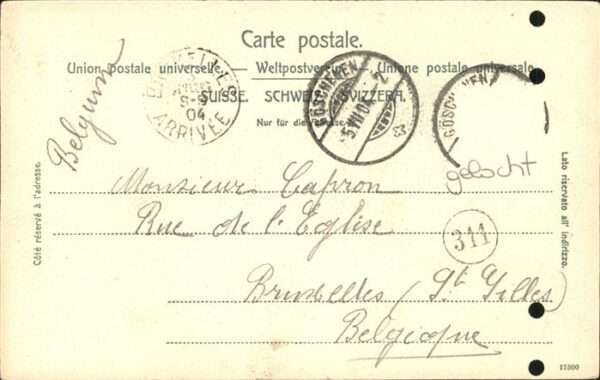 Carte postale.
Union postale universelle. — Weltpostverein. — Unione postale universale.
SUISSE. SCHWEIZ. SVIZZERA.
Nur für die Adresse.
Belgium
BRUXELLES
8-9
04
ARRIVÉE
GÖSCHENEN
5 VII 04
GÖSCHENEN
gelocht
Côté réservé à l'adresse.
Lato riservato all' indirizzo.
Monsieur Capron
Rue de l'Eglise
311
Bruxelles (St. Gilles)
Belgique